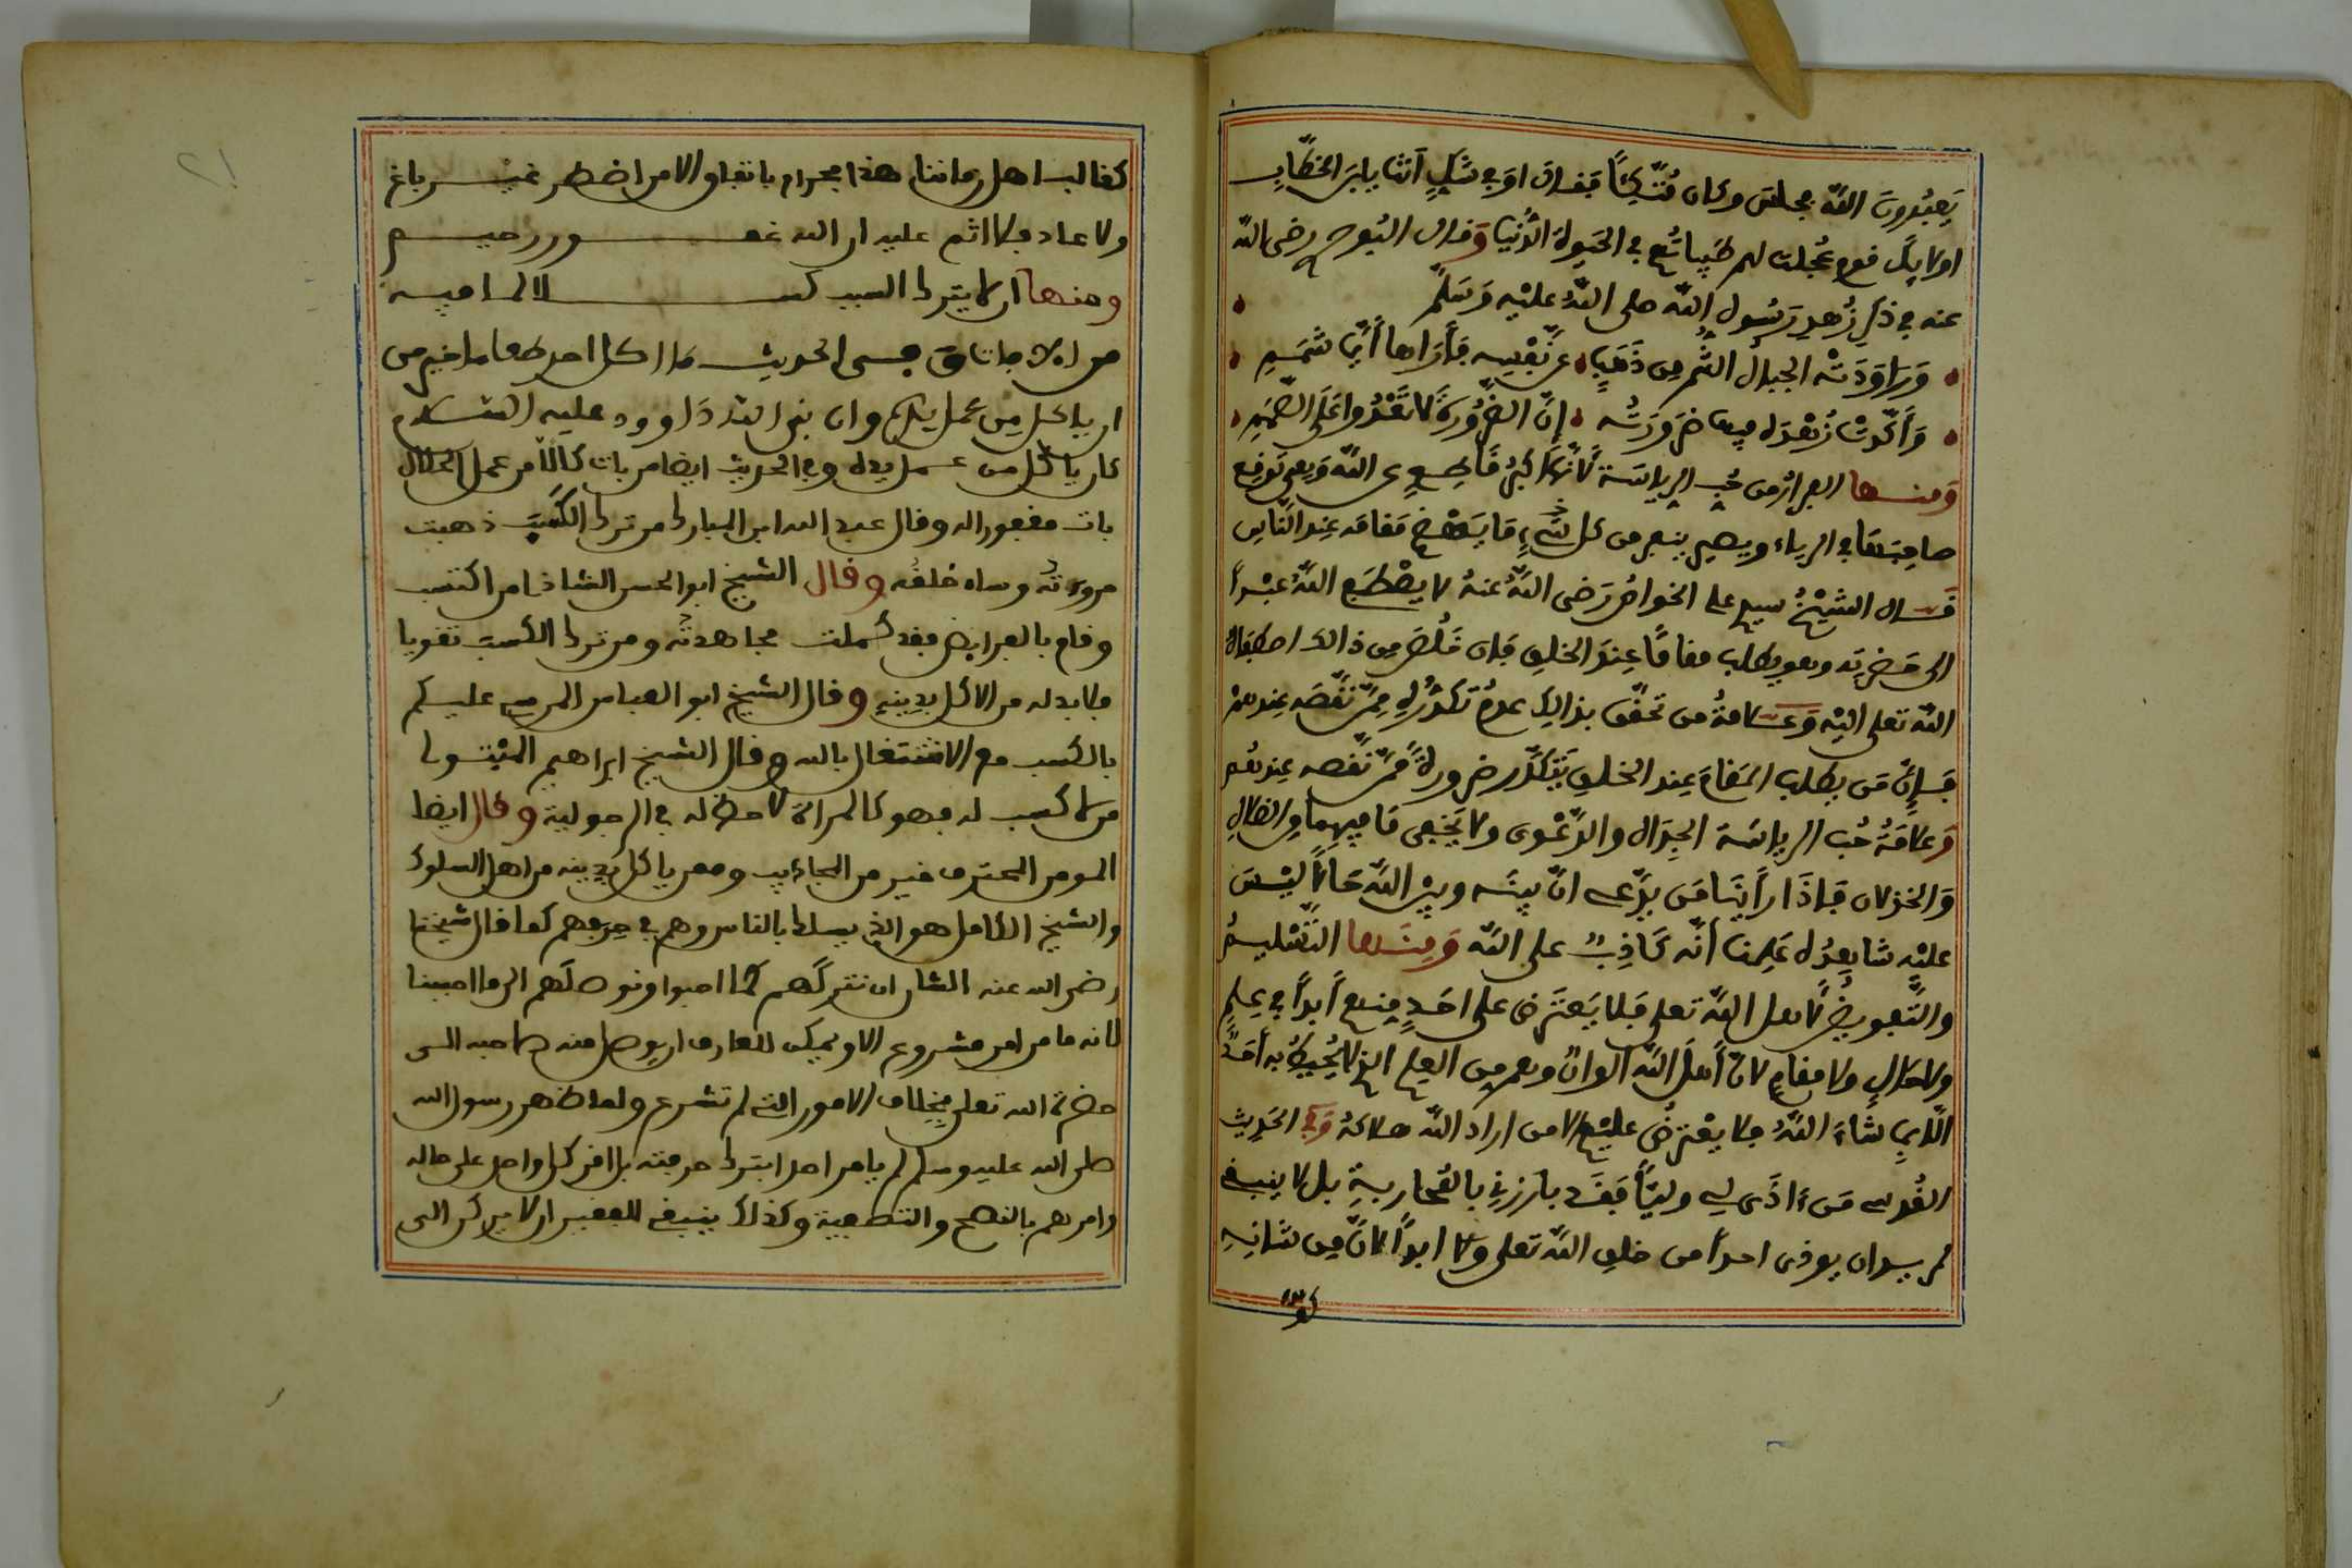 يَعبُدونَ اللهَ فجلس وكان مُتَّكِئاً فقال اوَفي شكٍّ انتَ يا بنَ الخطّابِ
اولايكَ قوم عُجلت لهم طَيِّباتُهم في الحيوة الدُّنيا وقال البُوصيري رضى الله
عنه في ذكر زُهدِ رَسُولِ اللهِ صلى اللهُ عليْهِ وَسَلَّمَ
وَرَاوَدَتْه الجبالُ الشُّمُّ مِن ذَهَبٍ عن نَّفْسِه فَأَرَاها أَيَّما شَمَمِ
وَأَكَّدَتْ زُهْدَه فيها ضَرُورَتُه إنَّ الضَّرُورَةَ لا تَعْدُوا عَلَى العِصَمِ
وَمنها الفرارُ من حُبِ الرياسَة لأنَّها اكبرُ قَاطِعٍ عن اللهِ وَهي تَوقع
صاحِبَهَا في الرياء ويصير ينفر من كل شَيءٍ مَا يَنقُص مَقامَه عِند النَّاسِ
قال الشَّيْخُ سيدي علي الخواصُ رَضى اللهُ عَنهُ لا يصْطَفي اللهُ عبْداً
الى حَضرتِه وهو يطلب مقامًا عِندَ الخلقِ فإن خَلُصَ مِن ذالك اصطفاهُ
اللهُ تعلى اليْه وَعلامةُ من تحقّق بذالِك عدمُ تَكدُّرِهِ مِمَّن نَّقَّصَه عِندهمْ
فإِنَّ مَن يطلب المَقامَ عِند الخلقِ يَتَكدَّر ضرورةً مِمَّن نَّقَّصه عِندهُم
وَعلامَةُ حُب الرياسَة الجِدَال والدَّعْوى ولا يَخْفى مَا فِيهِما مِن الضلالِ
وَالخذلان فإِذَا رَأَيْنَا مَن يدَّعى انَّ بينَه وبيْن اللهِ حَالاً ليْسَ
عليْهِ شاهِدُه عَلِمنا أنَّه كَاذِبٌ على اللهِ وَمِنها التَّسْليمُ
والتَّفويضُ لأهل اللهِ تعلى فَلا يَعتَرض على احَدٍ مِنهم أبداً في عِلمٍ
ولا حَالٍ ولا مقامٍ لانَّ أَهلَ اللهِ الوانٌ وهم مِن العِلم الذى لا يُحيطُ به أحَدٌ
الّا بِما شَاءَ اللهُ فلا يعْتَرِضُ عليْهم الا من اراد اللهُ هلاكهُ وَفي الحَدِيثِ
القُدسى مَن اذَى لي وليّاً فقَد بارزنِي بالمُحَاربةِ بل لا ينبغى
لمريد ان يوذى احداً من خلقِ اللهِ تعلى ولا ابداً لأنَّ مِن شانِه
كفالب اهل زماننا هذا فحرام باتفاق الا من اضطر غير باغ
ولا عاد فلا اثم عليه ان الله غفور رحيم
ومنها ان لا يترك السبب كسلا لما فيه
من الافات وفى الحديث ما اكل احد طعاما خير من
ان ياكل مِن عمل يده وان نبى الله دَاوود عليه السَّلام
كان ياكل من عمل يده وفي الحديث ايضا من بات كَالّاً من عمل الحلال
بات مغفورا له وقال عبد الله ابن المبارك من ترك الكَسْبَ ذهبت
مروءتُه وساء خلقُه وقال الشيخ ابو الحسن الشاذلى من اكتسب
وقام بالفرايض فقد كملت مجاهدتُه ومن ترك الكسب تقويا
فلا بد له من الاكل بدِينِه وقال الشيخ ابو العباس المرسى عليكم
بالكسب مع الاشتغال بالله وقال الشيخ ابراهيم المتْبُولى
من لا كسب له فهو كالمراة لا حظّ له في الرجولية وقال ايضا
المومن المحترف خير من المجاذيب وممن ياكل بِدِينِه من اهل السلوك
والشيخ الكامل هو الذى يسلك بالناس وهم في حِرفِهم كما قال شيخنا
رضى الله عنه الشان ان نتركَهم كما احبوا ونوصلَهم الى ما احببنا
لانه ما من امر مشروع الا ويمكن للعارف ان يوصل منه صاحبه الى
حضرة الله تعلى بخِلاف الامور التي لم تشرع ولما ظهر رسول الله
صلى الله عليه وسلم لم يامر احدا بترك حرفته بل اقر كل واحد على حاله
وامرهم بالنصح والتصفية وكذلك ينبغى للفقير ان لا يركن الى